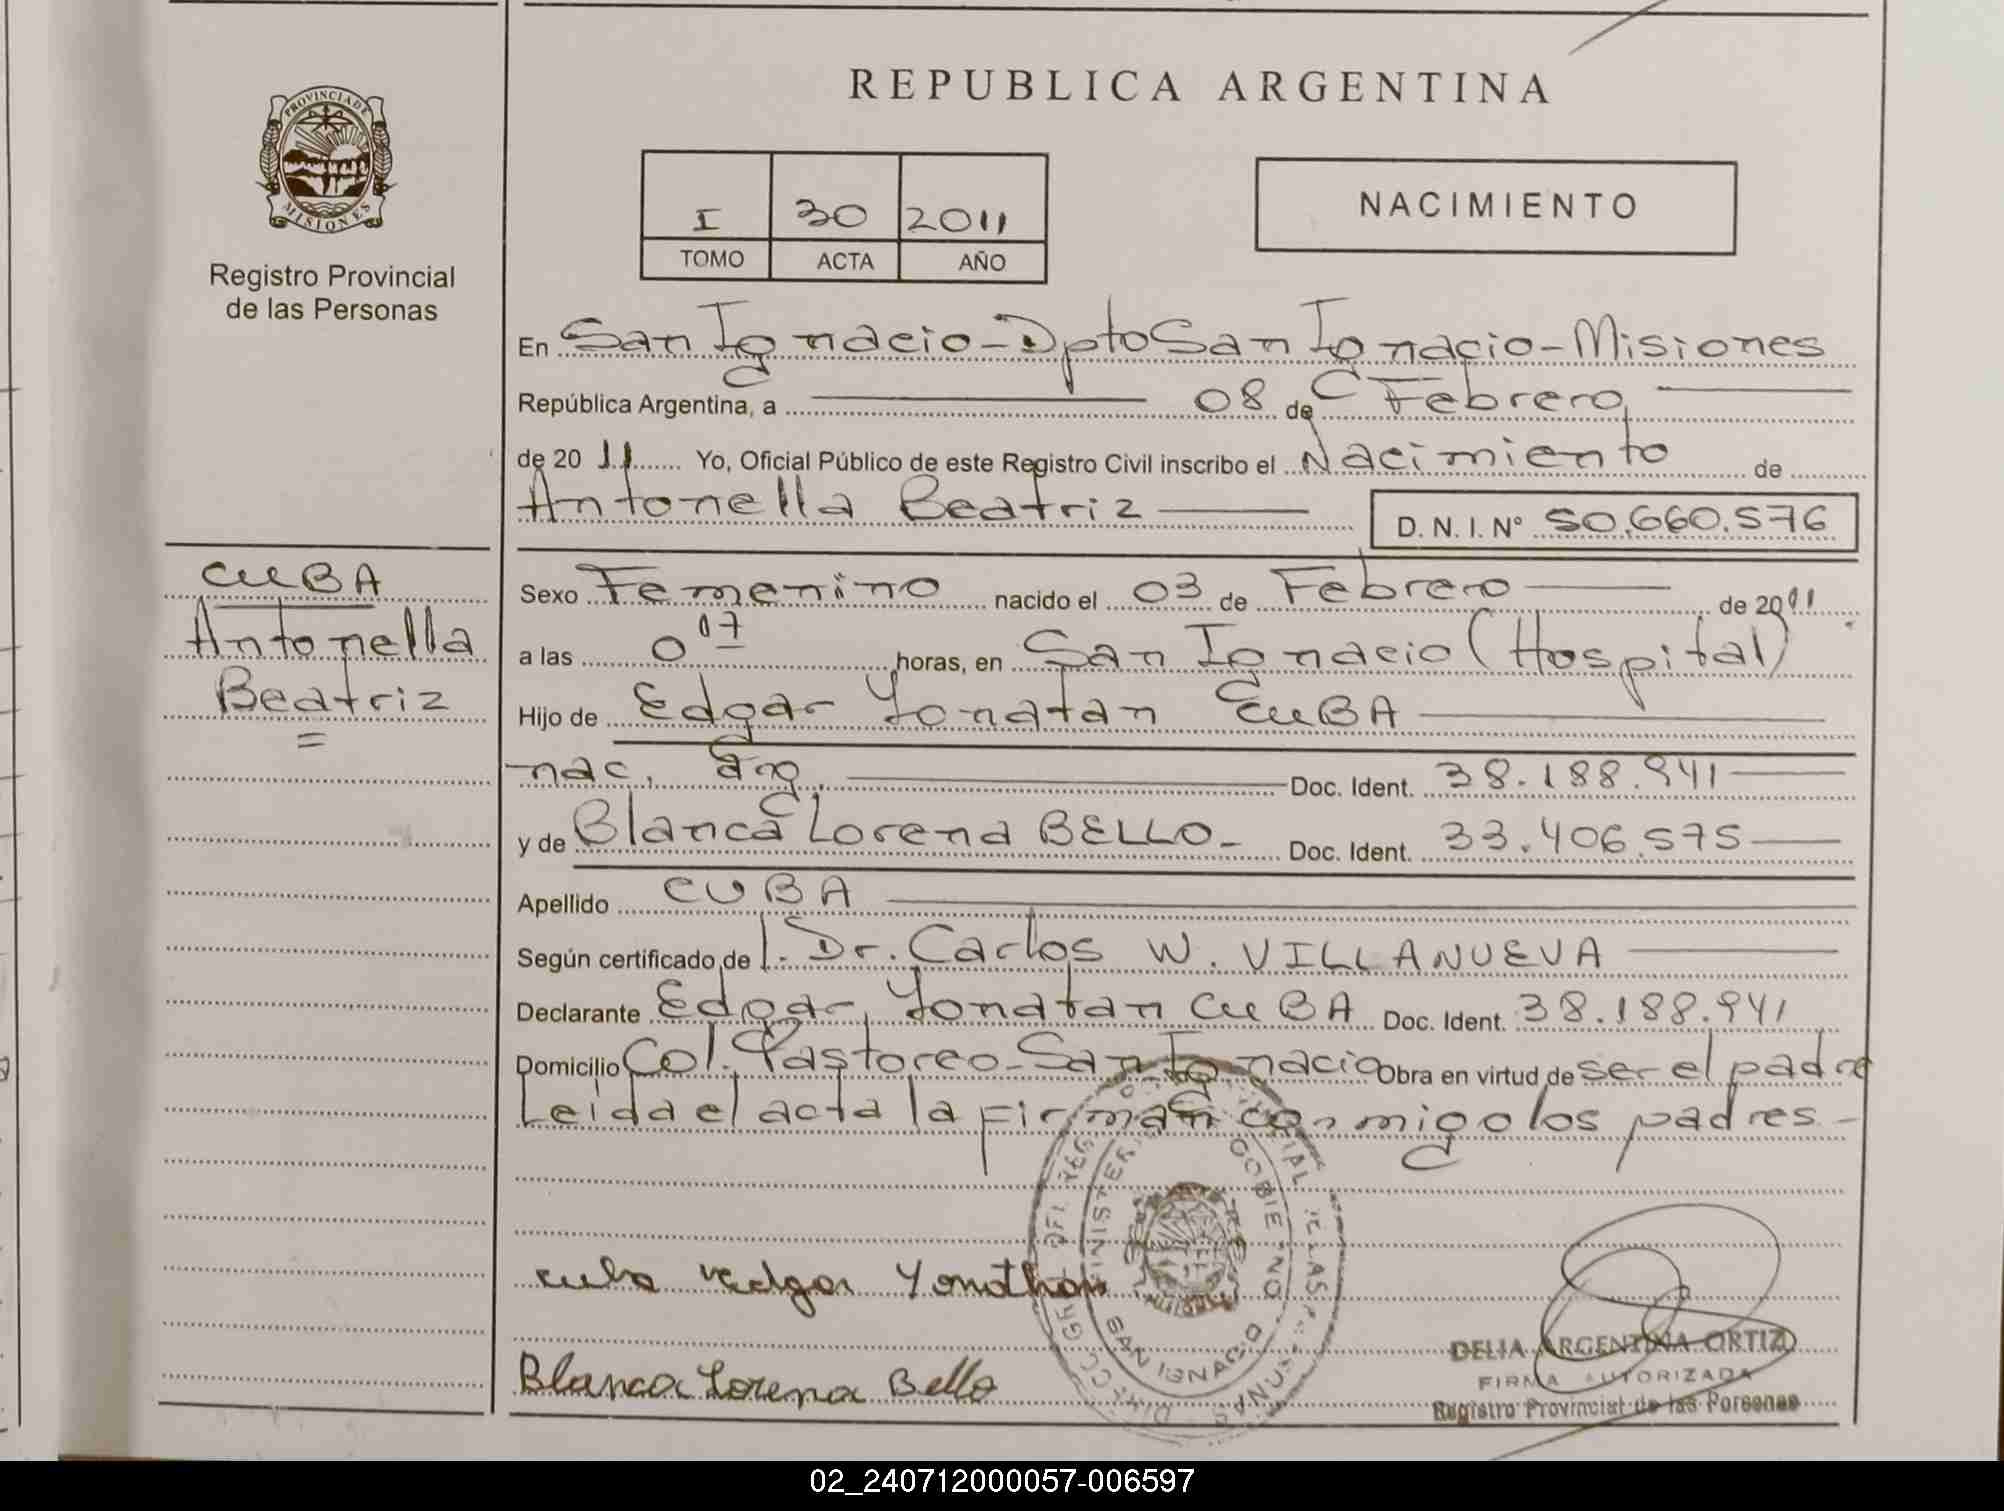 REPUBLICA ARGENTINA
PROVINCIA DE
MISIONES
Registro Provincial
de las Personas
I 30 2011
TOMO ACTA AÑO
NACIMIENTO
En San Ignacio - Dpto San Ignacio - Misiones
República Argentina, a 08 de Febrero
de 2011 Yo, Oficial Público de este Registro Civil inscribo el Nacimiento de
Antonella Beatriz D. N. I. N° 50.660.576
CUBA
Antonella
Beatriz
Sexo Femenino nacido el 03 de Febrero de 2011
a las 0 17 horas, en San Ignacio (Hospital)
Hijo de Edgar Yonatan CUBA
nac. arg. Doc. Ident. 38.188.941
y de Blanca Lorena BELLO - Doc. Ident. 33.406.575
Apellido CUBA
Según certificado de l. Dr. Carlos W. VILLANUEVA
Declarante Edgar Yonatan CUBA Doc. Ident. 38.188.941
Domicilio Col. Pastoreo - San Ignacio Obra en virtud de ser el padre
Leida el acta la firman conmigo los padres -
MINISTERIO GOBIERNO
SAN IGNACIO
cuba Yonathan
Blanca Lorena Bello
DELIA ARGENTINA ORTIZ
FIRMA AUTORIZADA
Registro Provincial de las Personas
02_240712000057-006597